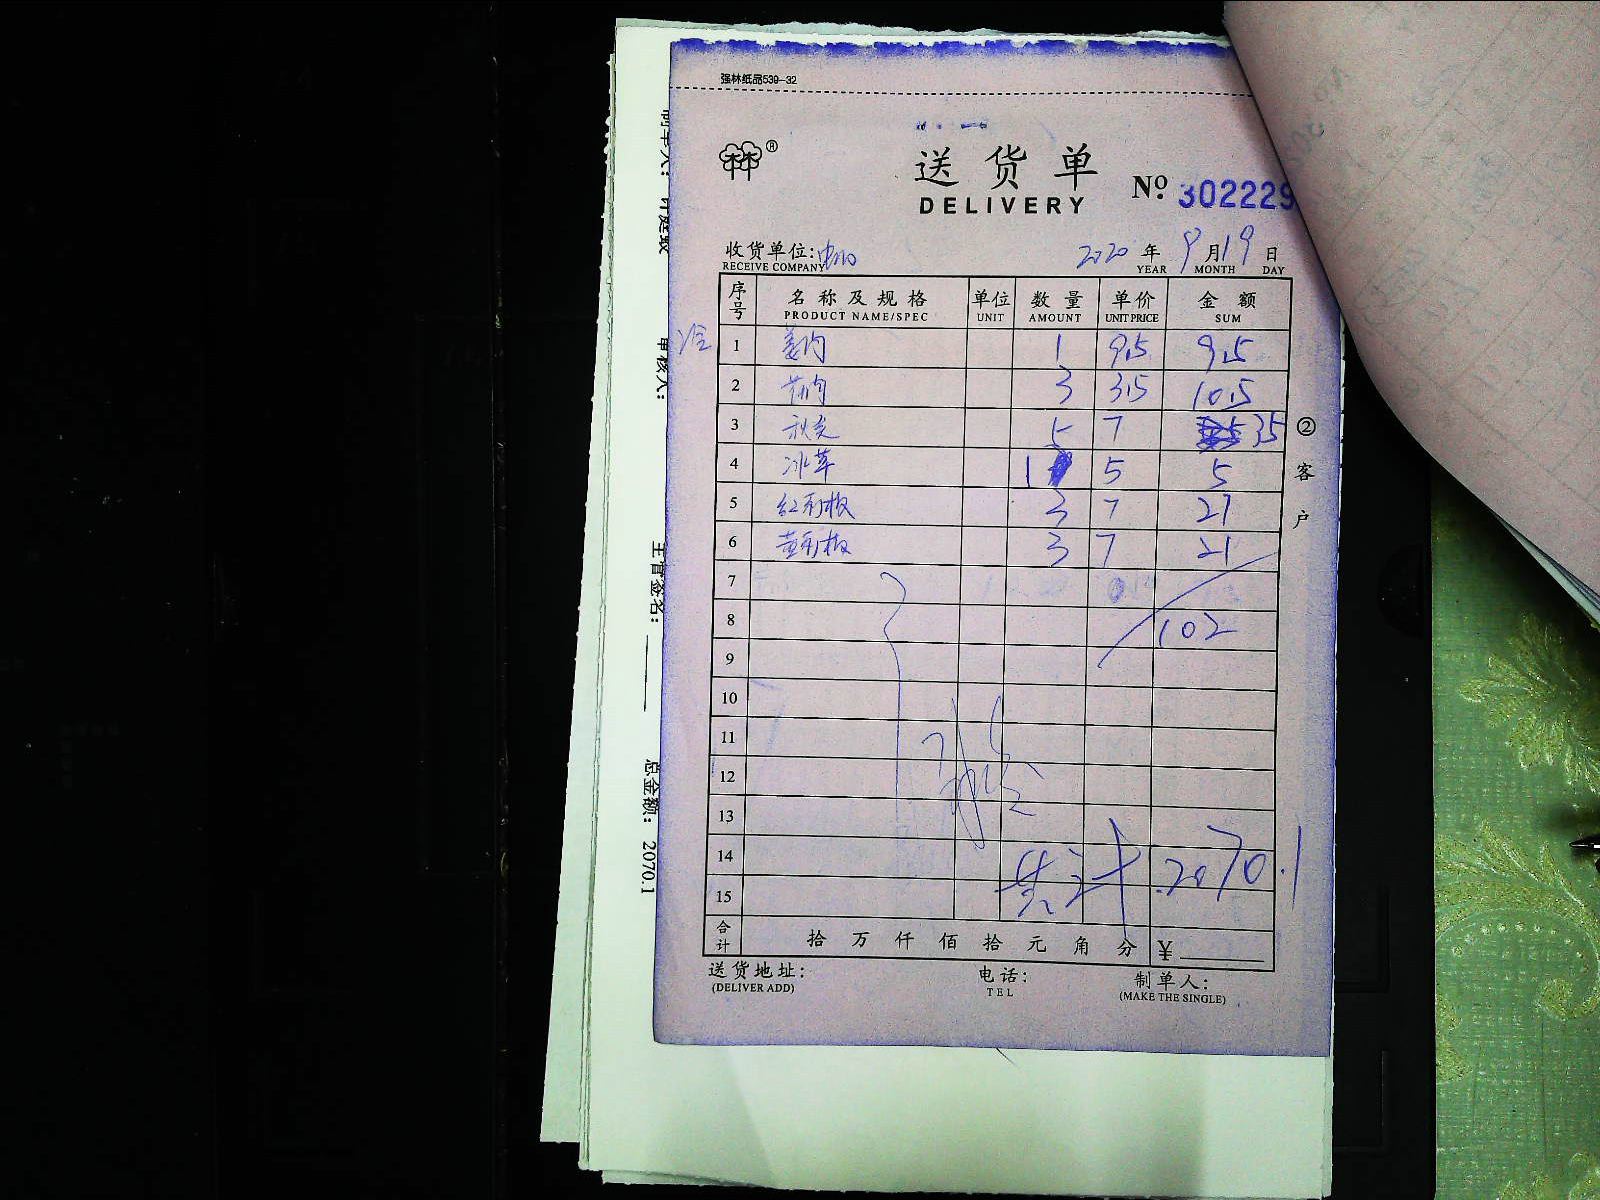 强林纸品539-32
送货单
DELIVERY
No. 302229
收货单位:
RECEIVE COMPANY
2020 年 9 月 19 日
YEAR MONTH DAY
序号 名称及规格 单位 数量 单价 金额
PRODUCT NAME/SPEC UNIT AMOUNT UNIT PRICE SUM
1 姜肉 1 9.5 9.5
2 3 3.5 10.5
3 秋葵 5 7 35
4 冰草 1 5 5
5 3 7 21
6 3 7 21
7
8 102
9
10
11
12
13
14 共计 2070.1
15
合计 拾 万 仟 佰 拾 元 角 分 ¥
送货地址: 电话: 制单人:
(DELIVER ADD) TEL (MAKE THE SINGLE)
②客户
审核人:
主管签名:
总金额: 2070.1